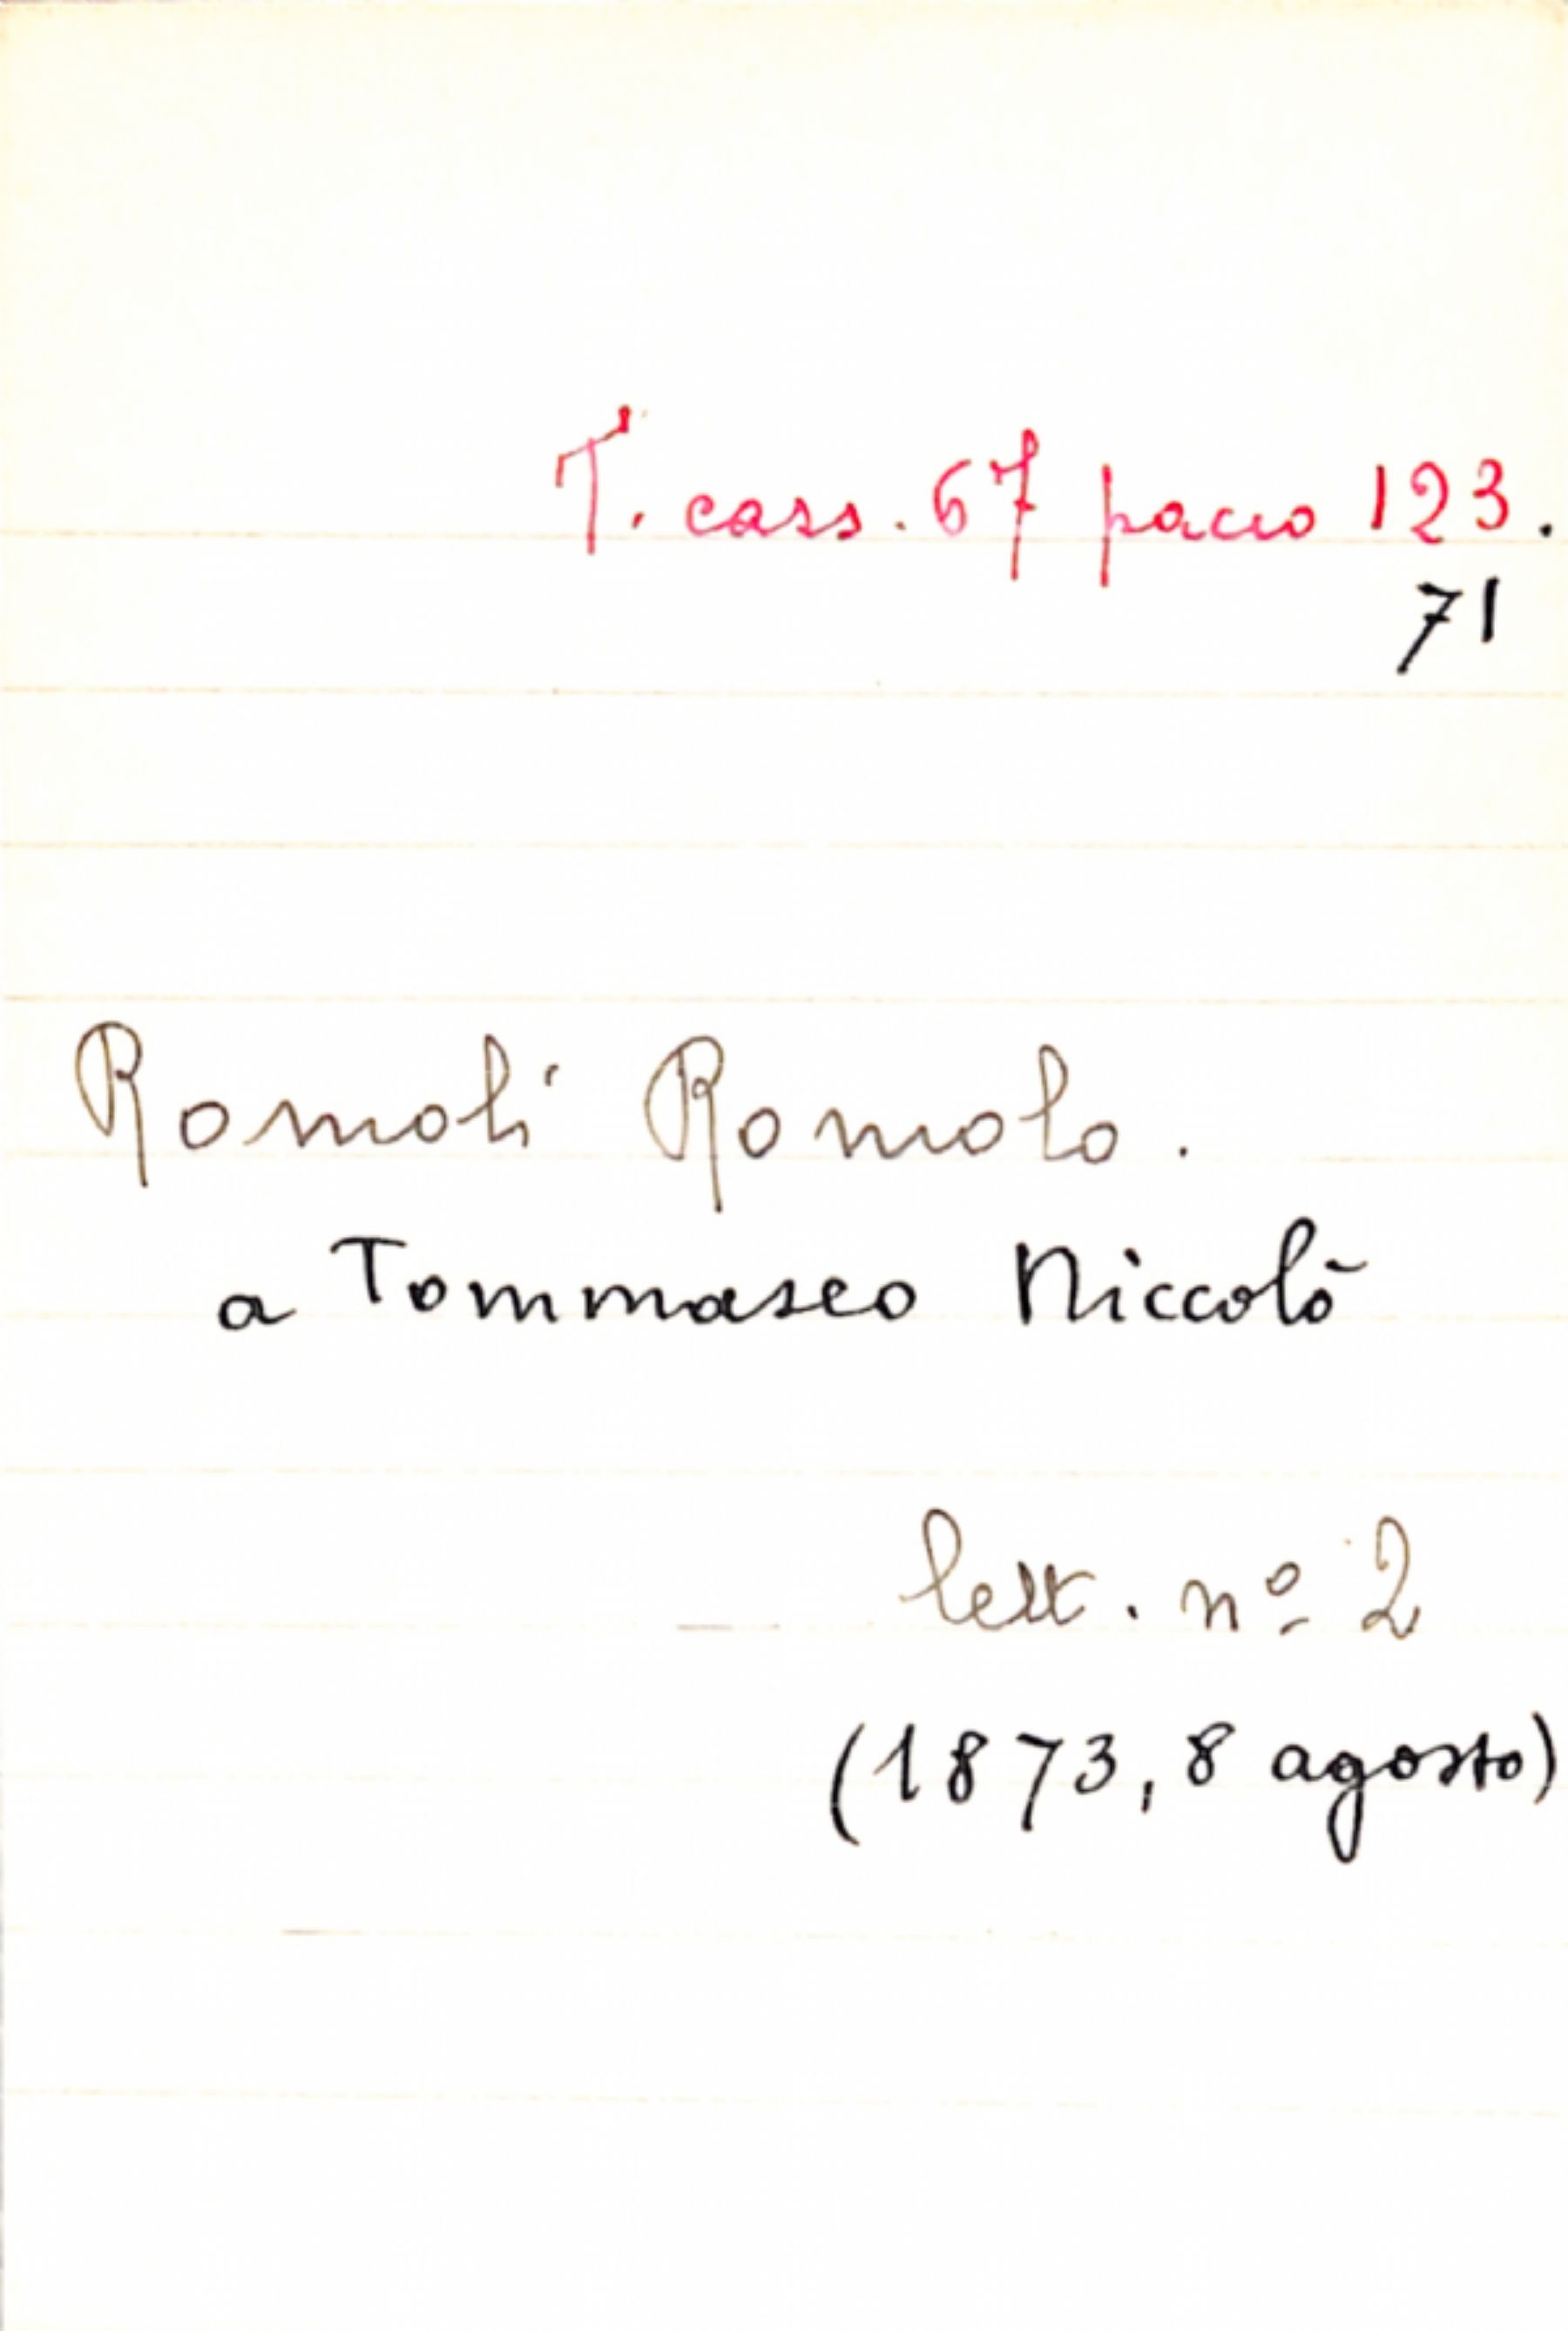 T. cass. 67 pacco 123.
71
Romoli Romolo.
a Tommaseo Niccolò
lett. nº 2
(1873, 8 agosto)